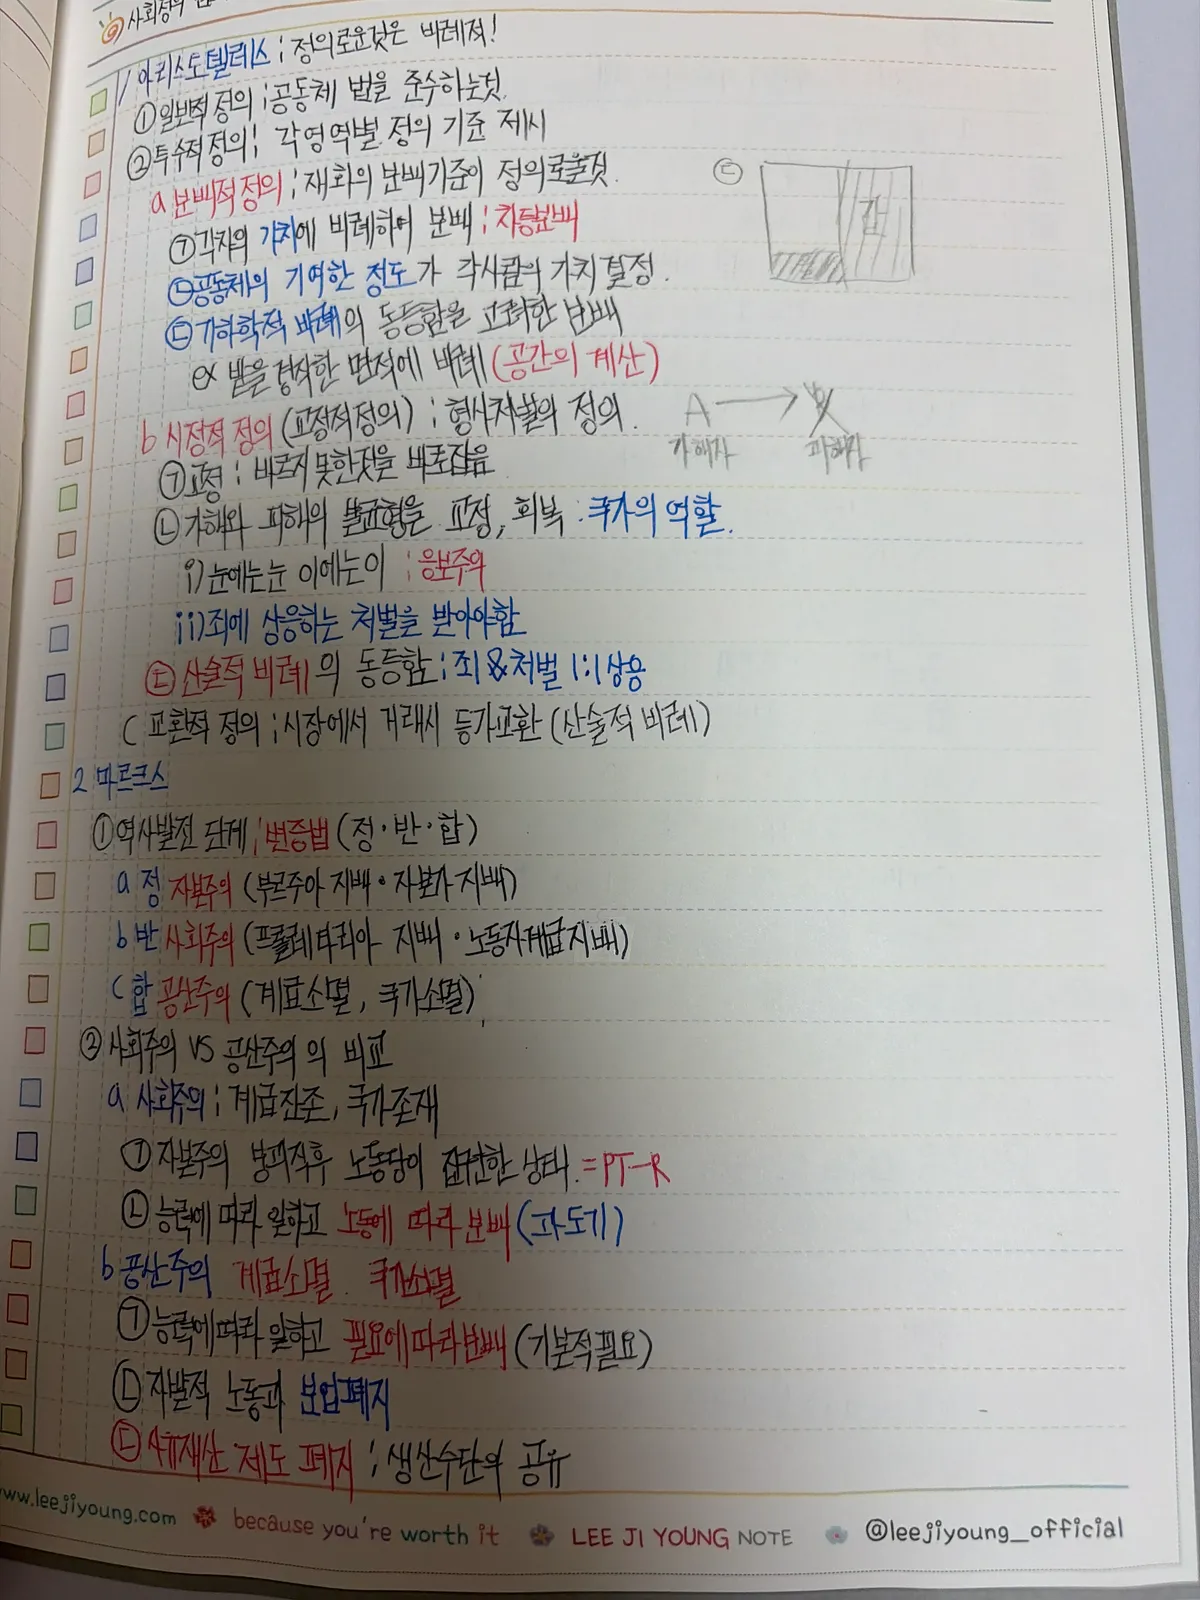 사회정의
1 아리스토텔레스 ; 정의로운것은 비례적!
① 일반적 정의 ; 공동체 법을 준수하는것.
② 특수적정의 ; 각 영역별 정의 기준 제시
a 분배적정의 ; 재화의 분배기준이 정의로울것.
㉠ 각자의 가치에 비례하여 분배 ; 차등분배
㉡ 공동체의 기여한 정도가 각사람의 가치 결정.
㉢ 기하학적 비례의 동등함을 고려한 분배
ex 밭을 경작한 면적에 비례 (공간의 계산)
㉢
갑
b 시정적 정의 (교정적정의) ; 형사처벌의 정의.
A → B
가해자 피해자
㉠ 교정 ; 바르지 못한것을 바로잡음
㉡ 가해와 피해의 불균형을 교정, 회복 : 국가의 역할.
i) 눈에는눈 이에는이 ; 응보주의
ii) 죄에 상응하는 처벌을 받아야함
㉢ 산술적 비례의 동등함 ; 죄&처벌 1:1 상응
c 교환적 정의 ; 시장에서 거래시 등가교환 (산술적 비례)
2 마르크스
① 역사발전 단계 ; 변증법 (정·반·합)
a 정 자본주의 (부르주아 지배·자본가 지배)
b 반 사회주의 (프롤레타리아 지배·노동자계급지배)
c 합 공산주의 (계급소멸, 국가소멸)
② 사회주의 VS 공산주의 의 비교
a 사회주의 ; 계급잔존, 국가존재
㉠ 자본주의 붕괴직후 노동당이 집권한 상태. = PT-R
㉡ 능력에 따라 일하고 노동에 따라 분배 (과도기)
b 공산주의 계급소멸. 국가소멸
㉠ 능력에따라 일하고 필요에따라분배 (기본적필요)
㉡ 자발적 노동과 분업폐지
㉢ 사유재산 제도 폐지 ; 생산수단의 공유
www.leejiyoung.com because you're worth it LEE JI YOUNG NOTE @leejiyoung_official